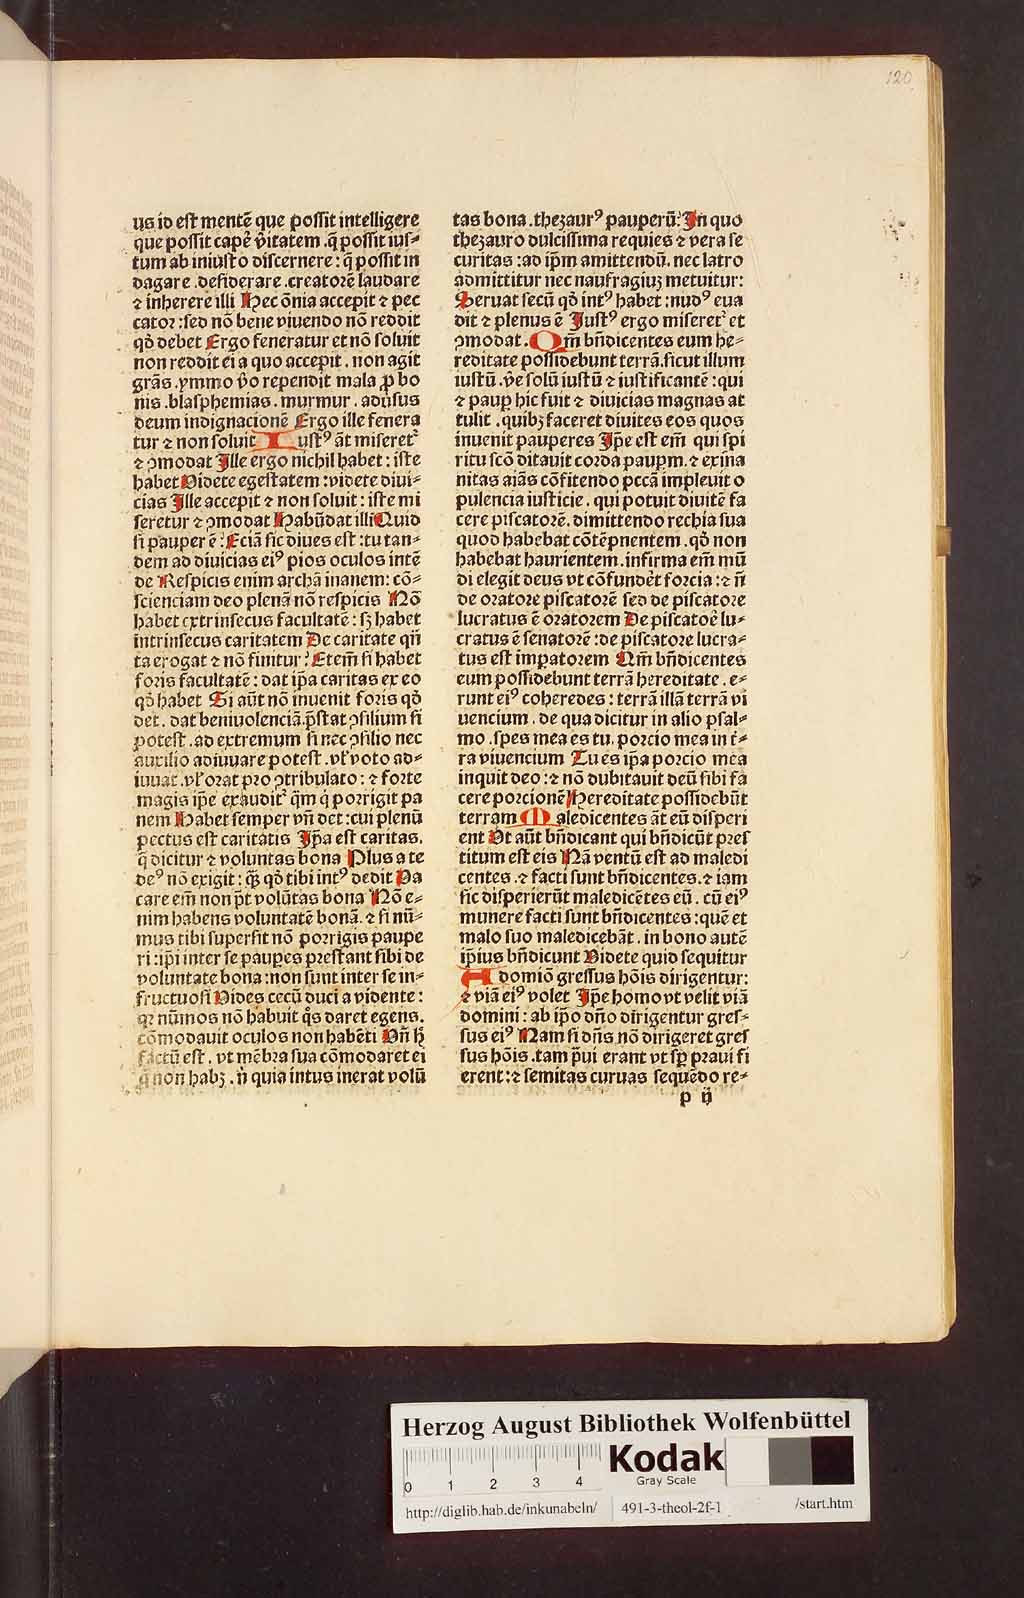 120
us id est mentē que possit intelligere
que possit capē v̄itatem .q̄ possit ius⸗
tum ab iniusto discernere : q̄ possit in
dagare .desiderare .creatorē laudare
⁊ inherere illi Hec ōnia accepit ⁊ pec
cator : sed nō bene viuendo nō reddit
qđ debet Ergo feneratur et nō soluit
non reddit ei a quo accepit . non agit
grās .ymmo v̄o rependit mala ꝓ bo
nis .blasphemias . murmur . adūsus
deum indignacionē Ergo ille fenera
tur ⁊ non soluit Iustꝰ āt miseretᷣ
⁊ ꝯmodat Ille ergo nichil habet : iste
habet Videte egestatem : videte diui⸗
cias Ille accepit ⁊ non soluit : iste mi
seretur ⁊ ꝯmodat Habūdat illi Quid
si pauper ē : Eciā sic diues est : tu tan⸗
dem ad diuicias eiꝰ pios oculos intē
de Respicis enim archā inanem : cō⸗
scienciam deo plenā nō respicis Nō
habet extrinsecus facultatē : sꝫ habet
intrinsecus caritatem De caritate qn̄
ta erogat ⁊ nō finitur : Etem̄ si habet
foris facultatē : dat ip̄a caritas ex eo
qđ habet Si aūt nō inuenit foris qđ
det . dat beniuolenciā .p̄stat ꝯsilium si
potest . ad extremum si nec ꝯsilio nec
auxilio adiuuare potest . vƚ voto ad⸗
iuuat .vƚ orat pro ꝯtribulato : ⁊ forte
magis ip̄e exauditᷣ q̄m q̇ porrigit pa
nem Habet semper vn̄ det : cui plenū
pectus est caritatis Ip̄a est caritas .
q̄ dicitur ⁊ voluntas bona Plus a te
deꝰ nō exigit : q̄ꝫ qđ tibi intꝰ dedit Va
care em̄ non p̄t volūtas bona Nō e⸗
nim habens voluntatē bonā . ⁊ si nū⸗
mus tibi supersit nō porrigis paupe
ri : ip̄i inter se paup̄es prestant sibi de
voluntate bona : non sunt inter se in⸗
fructuosi Vides cecū duci a vidente :
qꝛ nūmos nō habuit q̇s daret egens .
cōmodauit oculos non habēti Vn̄ ħ
factū est . vt mēbra sua cōmodaret ei
q̇ non habꝫ . n̄ quia intus inerat volū
tas bona .thezaurꝰ pauperū : In quo
thezauro dulcissima requies ⁊ vera se
curitas : ad ip̄m amittendū . nec latro
admittitur nec naufragiuʒ metuitur :
Seruat secū qđ intꝰ habet : nudꝰ eua
dit ⁊ plenus ē Iustꝰ ergo miseretᷣ et
ꝯmodat . Qm̄ bn̄dicentes eum he⸗
reditate possidebunt terrā . sicut illum
iustū . v̄e solū iustū ⁊ iustificantē : qui
⁊ paup̄ hic fuit ⁊ diuicias magnas at
tulit . quibꝫ faceret diuites eos quos
inuenit pauperes Ip̄e est em̄ qui spi
ritu scō ditauit corda paupm̄ . ⁊ exina
nitas aīas cōfitendo pccā impleuit o
pulencia iusticie . qui potuit diuitē fa
cere piscatorē . dimittendo rechia sua
quod habebat cōtēpnentem . qđ non
habebat haurientem . infirma em̄ mū
di elegit deus vt cōfundēt forcia : ⁊ n̄
de oratore piscatorē sed de piscatore
lucratus ē oratorem De piscatoē lu⸗
cratus ē senatorē : de piscatore lucra⸗
tus est imp̄atorem Qm̄ bn̄dicentes
eum possidebunt terrā hereditate . e⸗
runt eiꝰ coheredes : terrā illā terrā vi
uencium . de qua dicitur in alio psal⸗
mo .spes mea es tu . porcio mea in t̄⸗
ra viuencium Tu es ip̄a porcio mea
inquit deo : ⁊ nō dubitauit deū sibi fa
cere porcionē Hereditate possidebūt
terram Maledicentes āt eū disperi
ent Vt aūt bn̄dicant qui bn̄dicūt pres
titum est eis Nā ventū est ad maledi
centes . ⁊ facti sunt bn̄dicentes . ⁊ iam
sic disperierūt maledicētes eū . cū eiꝰ
munere facti sunt bn̄dicentes : quē et
malo suo maledicebāt . in bono autē
ip̄ius bn̄dicunt Videte quid sequitur
A domiō gressus hōis dirigentur :
⁊ viā eiꝰ volet Ip̄e homo vt velit viā
domini : ab ip̄o dn̄o dirigentur gres⸗
sus eiꝰ Nam si dn̄s nō dirigeret gres
sus hōis . tam p̄ui erant vt sp̄ praui si
erent : ⁊ semitas curuas sequēdo re⸗
p ij
Herzog August Bibliothek Wolfenbüttel
0 1 2 3 4
Kodak
Gray Scale
http://diglib.hab.de/inkunabeln/ 491-3-theol-2f-1 /start.htm